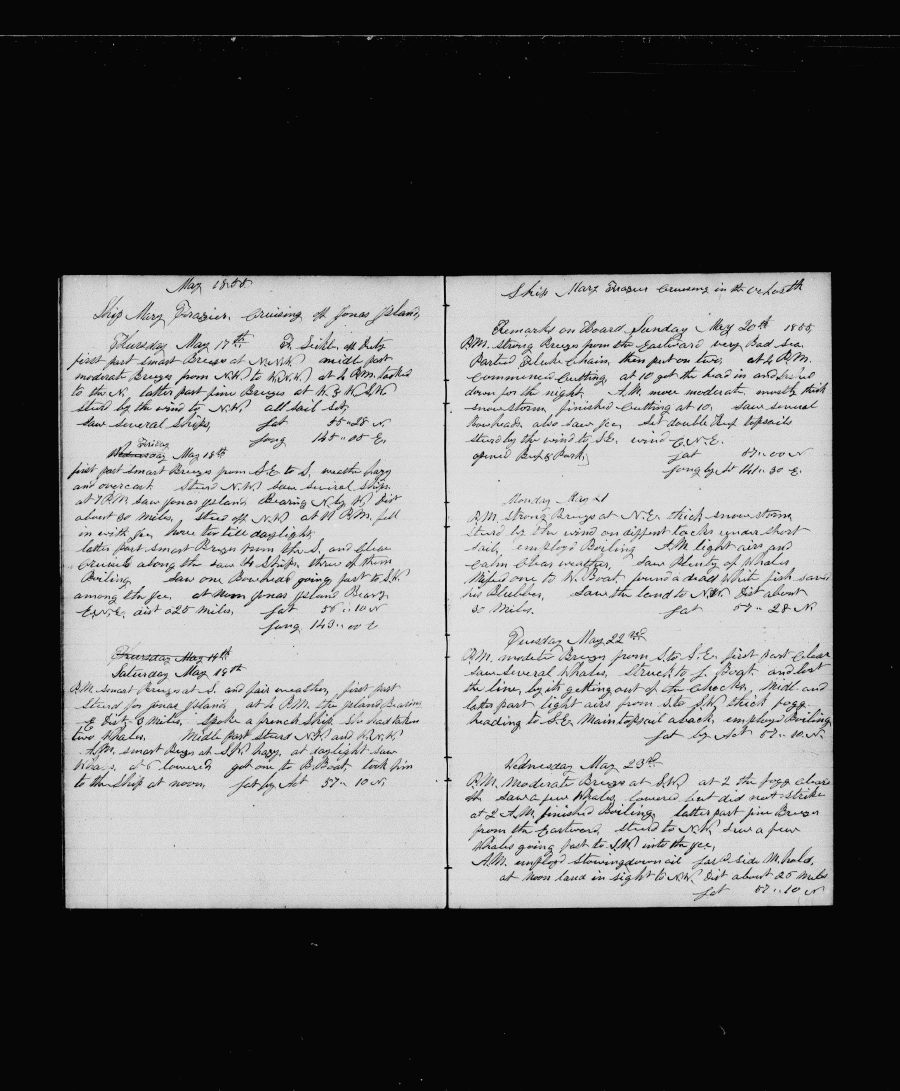 May 1855
Ship Mary Frazier Cruising off Jonas Island
Thursday May 17th off Duty
first part smart Breeze at N.N.W. midle part
moderat Breezes from N.W. to W.N.W. at 4 P.M. tacked
to the N. latter part fine Breezes at W. & W.S.W.
steerd by the wind to N.W. all sail set,
saw several ships, Lat 55"28 N
Long 145"05 E.
Friday
Wednesday May 18th
first part smart Breezes from S.E. to S. weather hazy
and overcast. Steerd N.W. saw several ships
at 7 P.M. saw Jonas Island Bearing N. by W. Dist
about 30 miles, steerd off N.W. at 11 P.M. fell
in with Ice, hove to till daylight,
latter part smart Breezes from the S. and Clear
Cruised along the saw 14 ships. three of them
Boiling saw one Bowhead going fast to S.W.
among the Ice. at Noon Jonas Island Bears
E.N.E. dist 25 miles, Lat 56"10 N
Long 143"00 E
Thursday May 19th
Saturday May 19th
P.M. smart Breezes at S. and fair weather, first part
steerd for Jonas Island, at 4 P.M. the Island Bearing
E Dist 8 miles, spoke a french ship. she had taken
two Whales. Midle part steerd N.W. and W.N.W.
A.M. smart Breezes at S.W. hazy, at daylight saw
Whales, lowered got one to B. Boat. took him
to the ship at noon, Lat by Act 57"10 N
Ship Mary Frazier Cruising in the Ochosth
Remarks on Board Sunday May 20th 1855
P.M. strong Breezes from the Eastward very Bad sea.
Parted Fluke Chain, then put on two, at 4 P.M.
Commenced Cutting, at 10 got the head in and lashed
down for the night A.M. more moderate. mostly thick
snow storm, finished Cutting at 10. saw several
Bowheads. also saw Ice. set double Reef topsails
steerd by the wind to S.E. wind E.N.E.
opened Beef & Pork Lat 57"00 N
Long by Act 141"30 E.
Monday May 21
P.M. strong Breezes at N.E. thick snow storm,
steerd by the wind on different tacks under short
sail, employd Boiling A.M. light airs and
Calm Clear weather, saw Plenty of Whales,
Missed one to W. Boat. found a dead White fish saved
his Blubber, saw the land to N.W. Dist about
30 Miles. Lat 57"28 N.
Tuesday May 22nd
P.M. moderate Breezes from S. to S.E. first part Clear
saw several Whales, struck to L. Boat. and lost
the line, by its getting out of the Chocks, Midl and
latter part light airs from S. to S.W. thick fogg
heading to S.E. Main topsail aback, employd Boiling
Lat by Act 57"10 N.
Wednesday May 23rd
P.M. Moderate Breezes at S.W. at 2 the fogg Clears
saw a few Whales, lowered but did not strike
at 2 A.M. finished Boiling, latter part fine Breezes
from the Eastward, steerd to N.W. saw a few
Whales going fast to S.W. into the Ice,
A.M. employd stowing down oil Larb side M. hold,
at noon land in sight to N.W. Dist about 25 miles
Lat 57"10 N